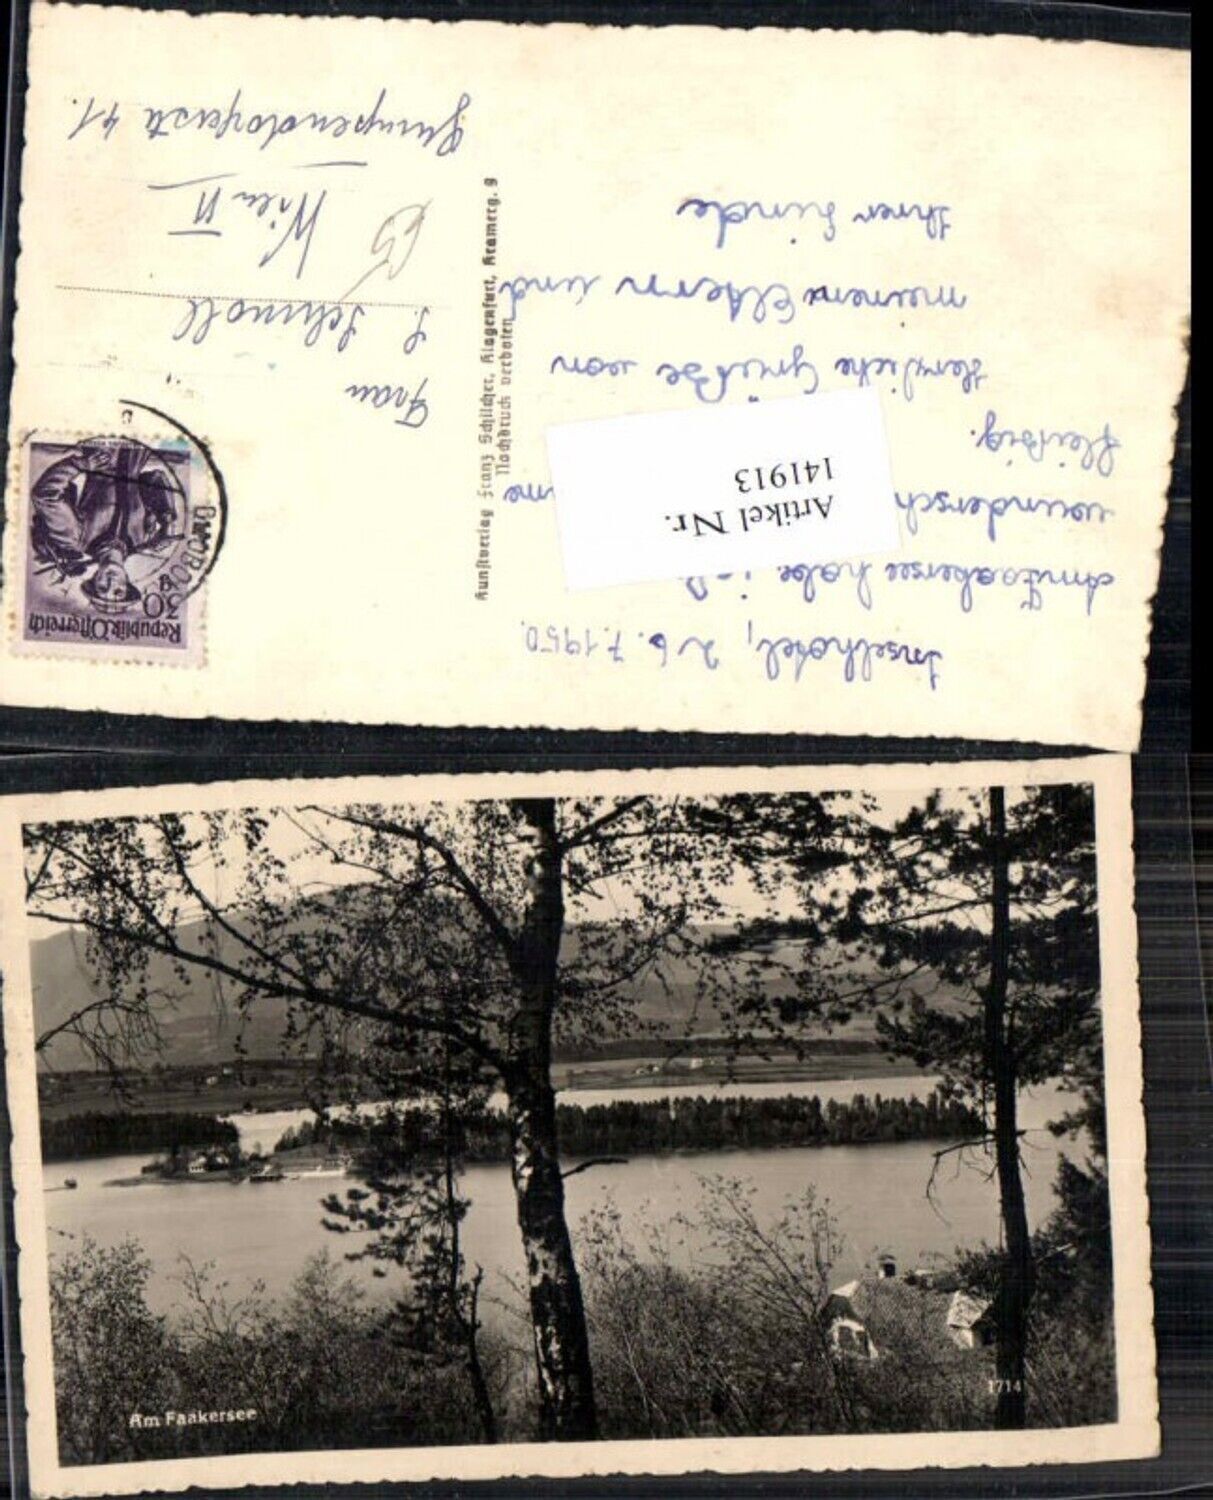 Inselhotel, 26.7.1950.
Am Faakersee habe ich
wundersch
fleißig.
Herzliche Grüße von
meinen Eltern und
Ihrer
Artikel Nr.
141913
Kunstverlag Franz Schilcher, Klagenfurt, Kramerg. 9
Nachdruck verboten
Republik Österreich
30
Frau
Wien VI
Gumpendorferstr. 41.
Am Faakersee
1714